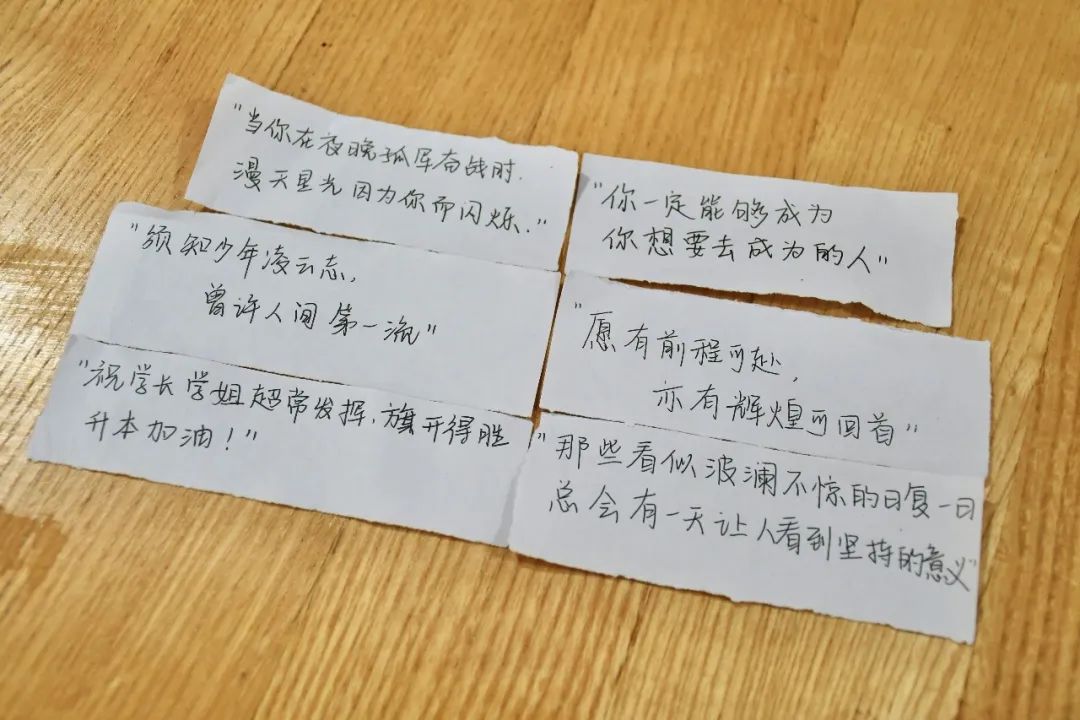 "当你在夜晚孤军奋战时.
漫天星光因为你而闪烁."
"须知少年凌云志,
曾许人间第一流"
"祝学长学姐超常发挥,旗开得胜
升本加油!"
"你一定能够成为
你想要去成为的人"
"愿有前程可赴,
亦有辉煌可回首"
"那些看似波澜不惊的日复一日
总会有一天让人看到坚持的意义"